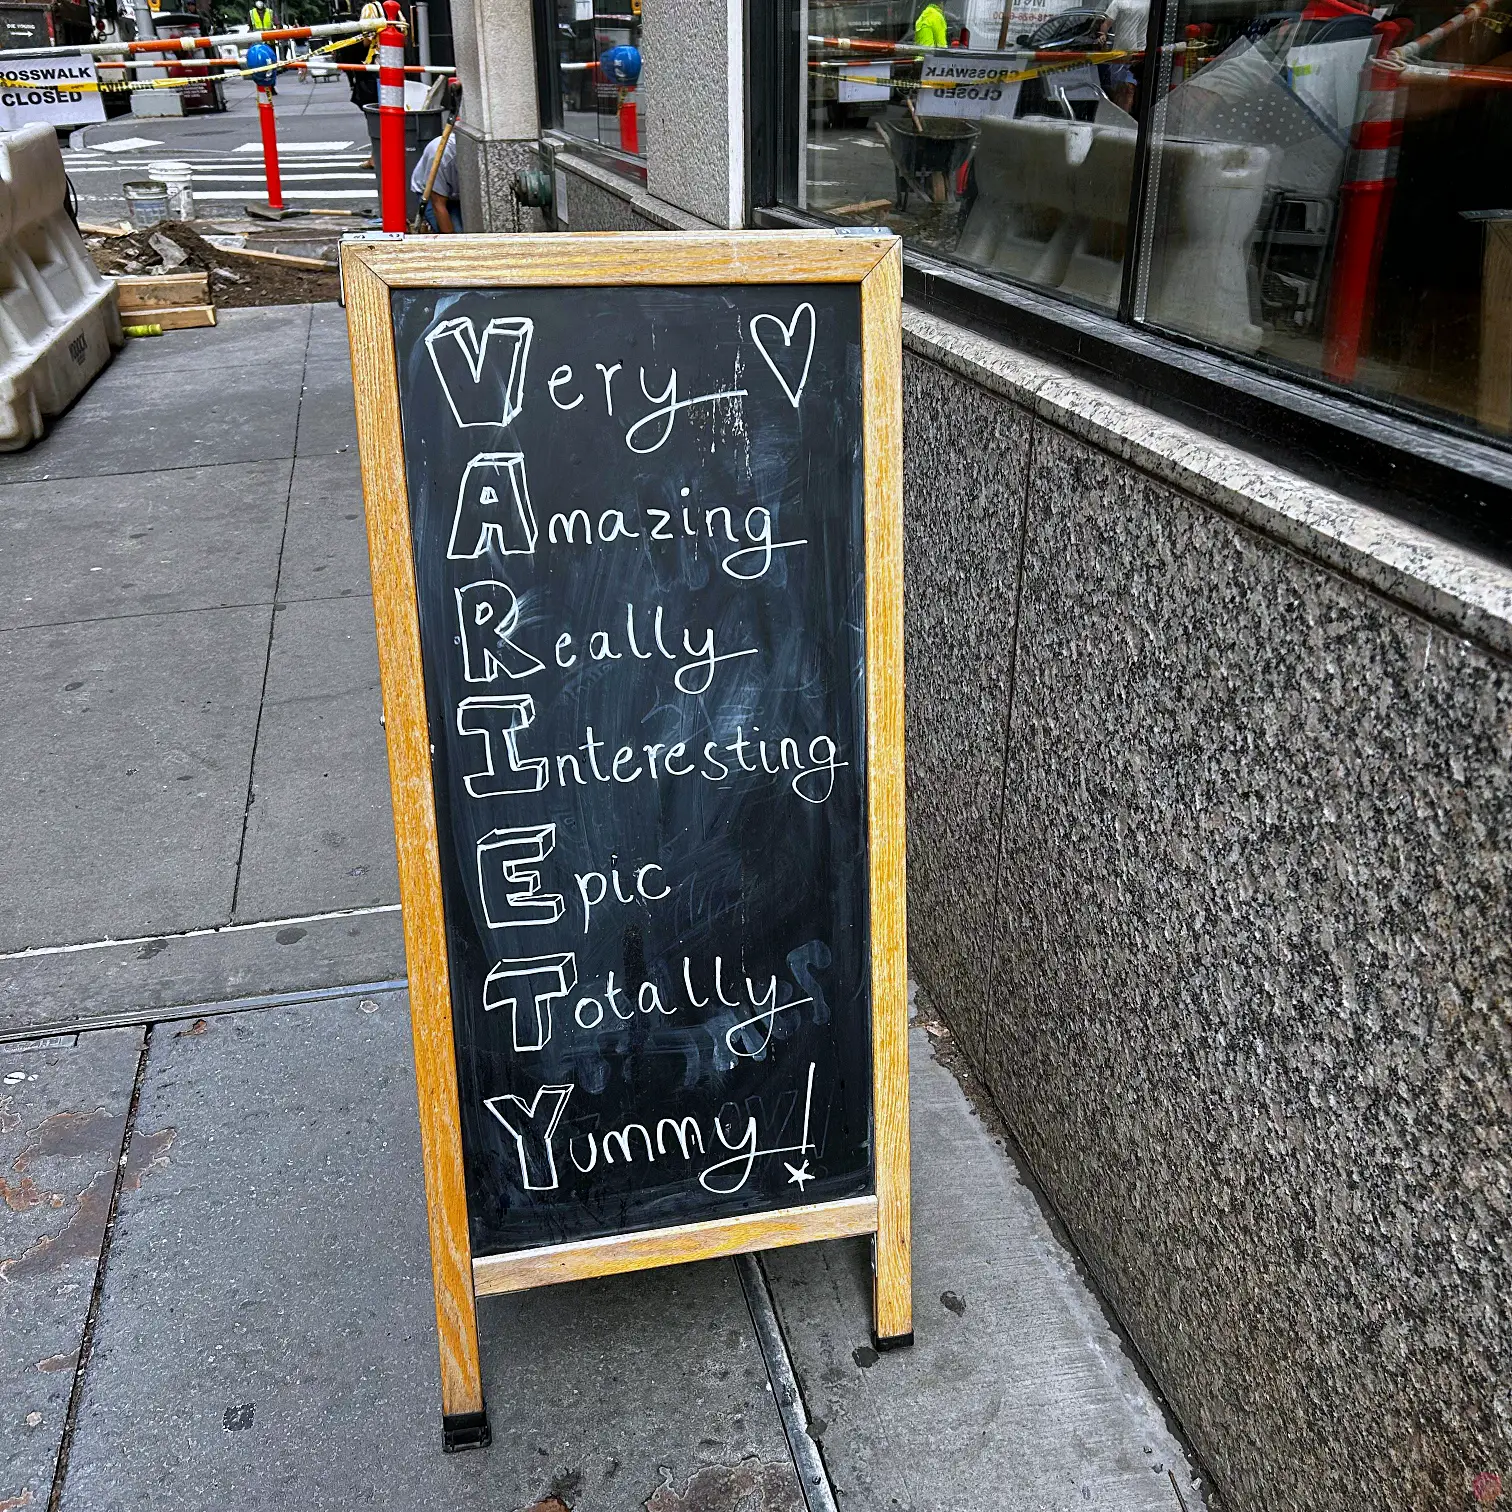 CROSSWALK
CLOSED
CROSSWALK
CLOSED
Very
Amazing
Really
Interesting
Epic
Totally
Yummy!